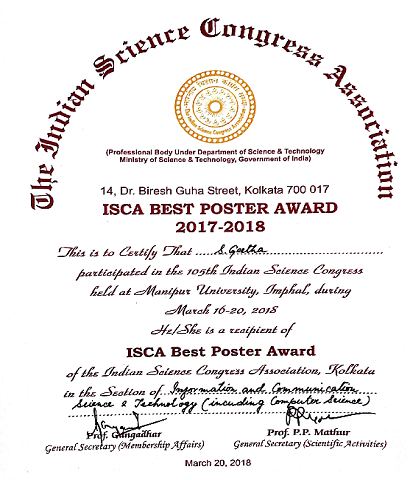 The Indian Science Congress Association
(Professional Body Under Department of Science & Technology
Ministry of Science & Technology, Government of India)
14, Dr. Biresh Guha Street, Kolkata 700 017
ISCA BEST POSTER AWARD
2017-2018
This is to Certify That ..... S. Geetha .....
participated in the 105th Indian Science Congress
held at Manipur University, Imphal, during
March 16-20, 2018
He/She is a recipient of
ISCA Best Poster Award
of the Indian Science Congress Association, Kolkata
in the Section of Information and Communication
Science & Technology (including Computer Science)
Prof. Gangadhar
General Secretary (Membership Affairs)
Prof. P.P. Mathur
General Secretary (Scientific Activities)
March 20, 2018